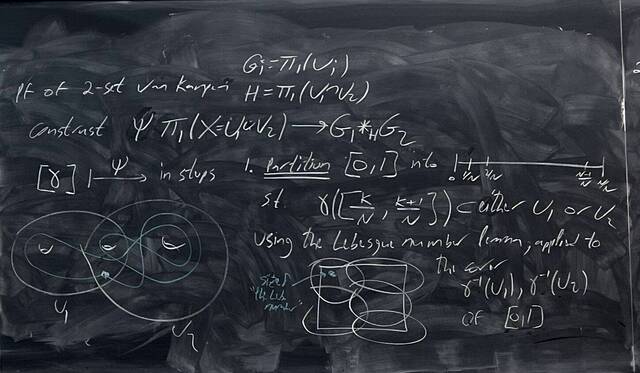 Gi=π₁(Ui)
Pf of 2-set van Kampen H=π₁(U₁∩U₂)
construct Ψ π₁(X=U₁∪U₂) → G₁*_H G₂
[γ] |—Ψ→ in steps
1. Partition [0,1] into
0 1/N 2/N N-1/N N/N
st. γ([k/N, k+1/N]) ⊂ either U₁ or U₂
using the Lebesgue number lemma, applied to
the cover
γ⁻¹(U₁), γ⁻¹(U₂)
of [0,1]
U₁
U₂
number"